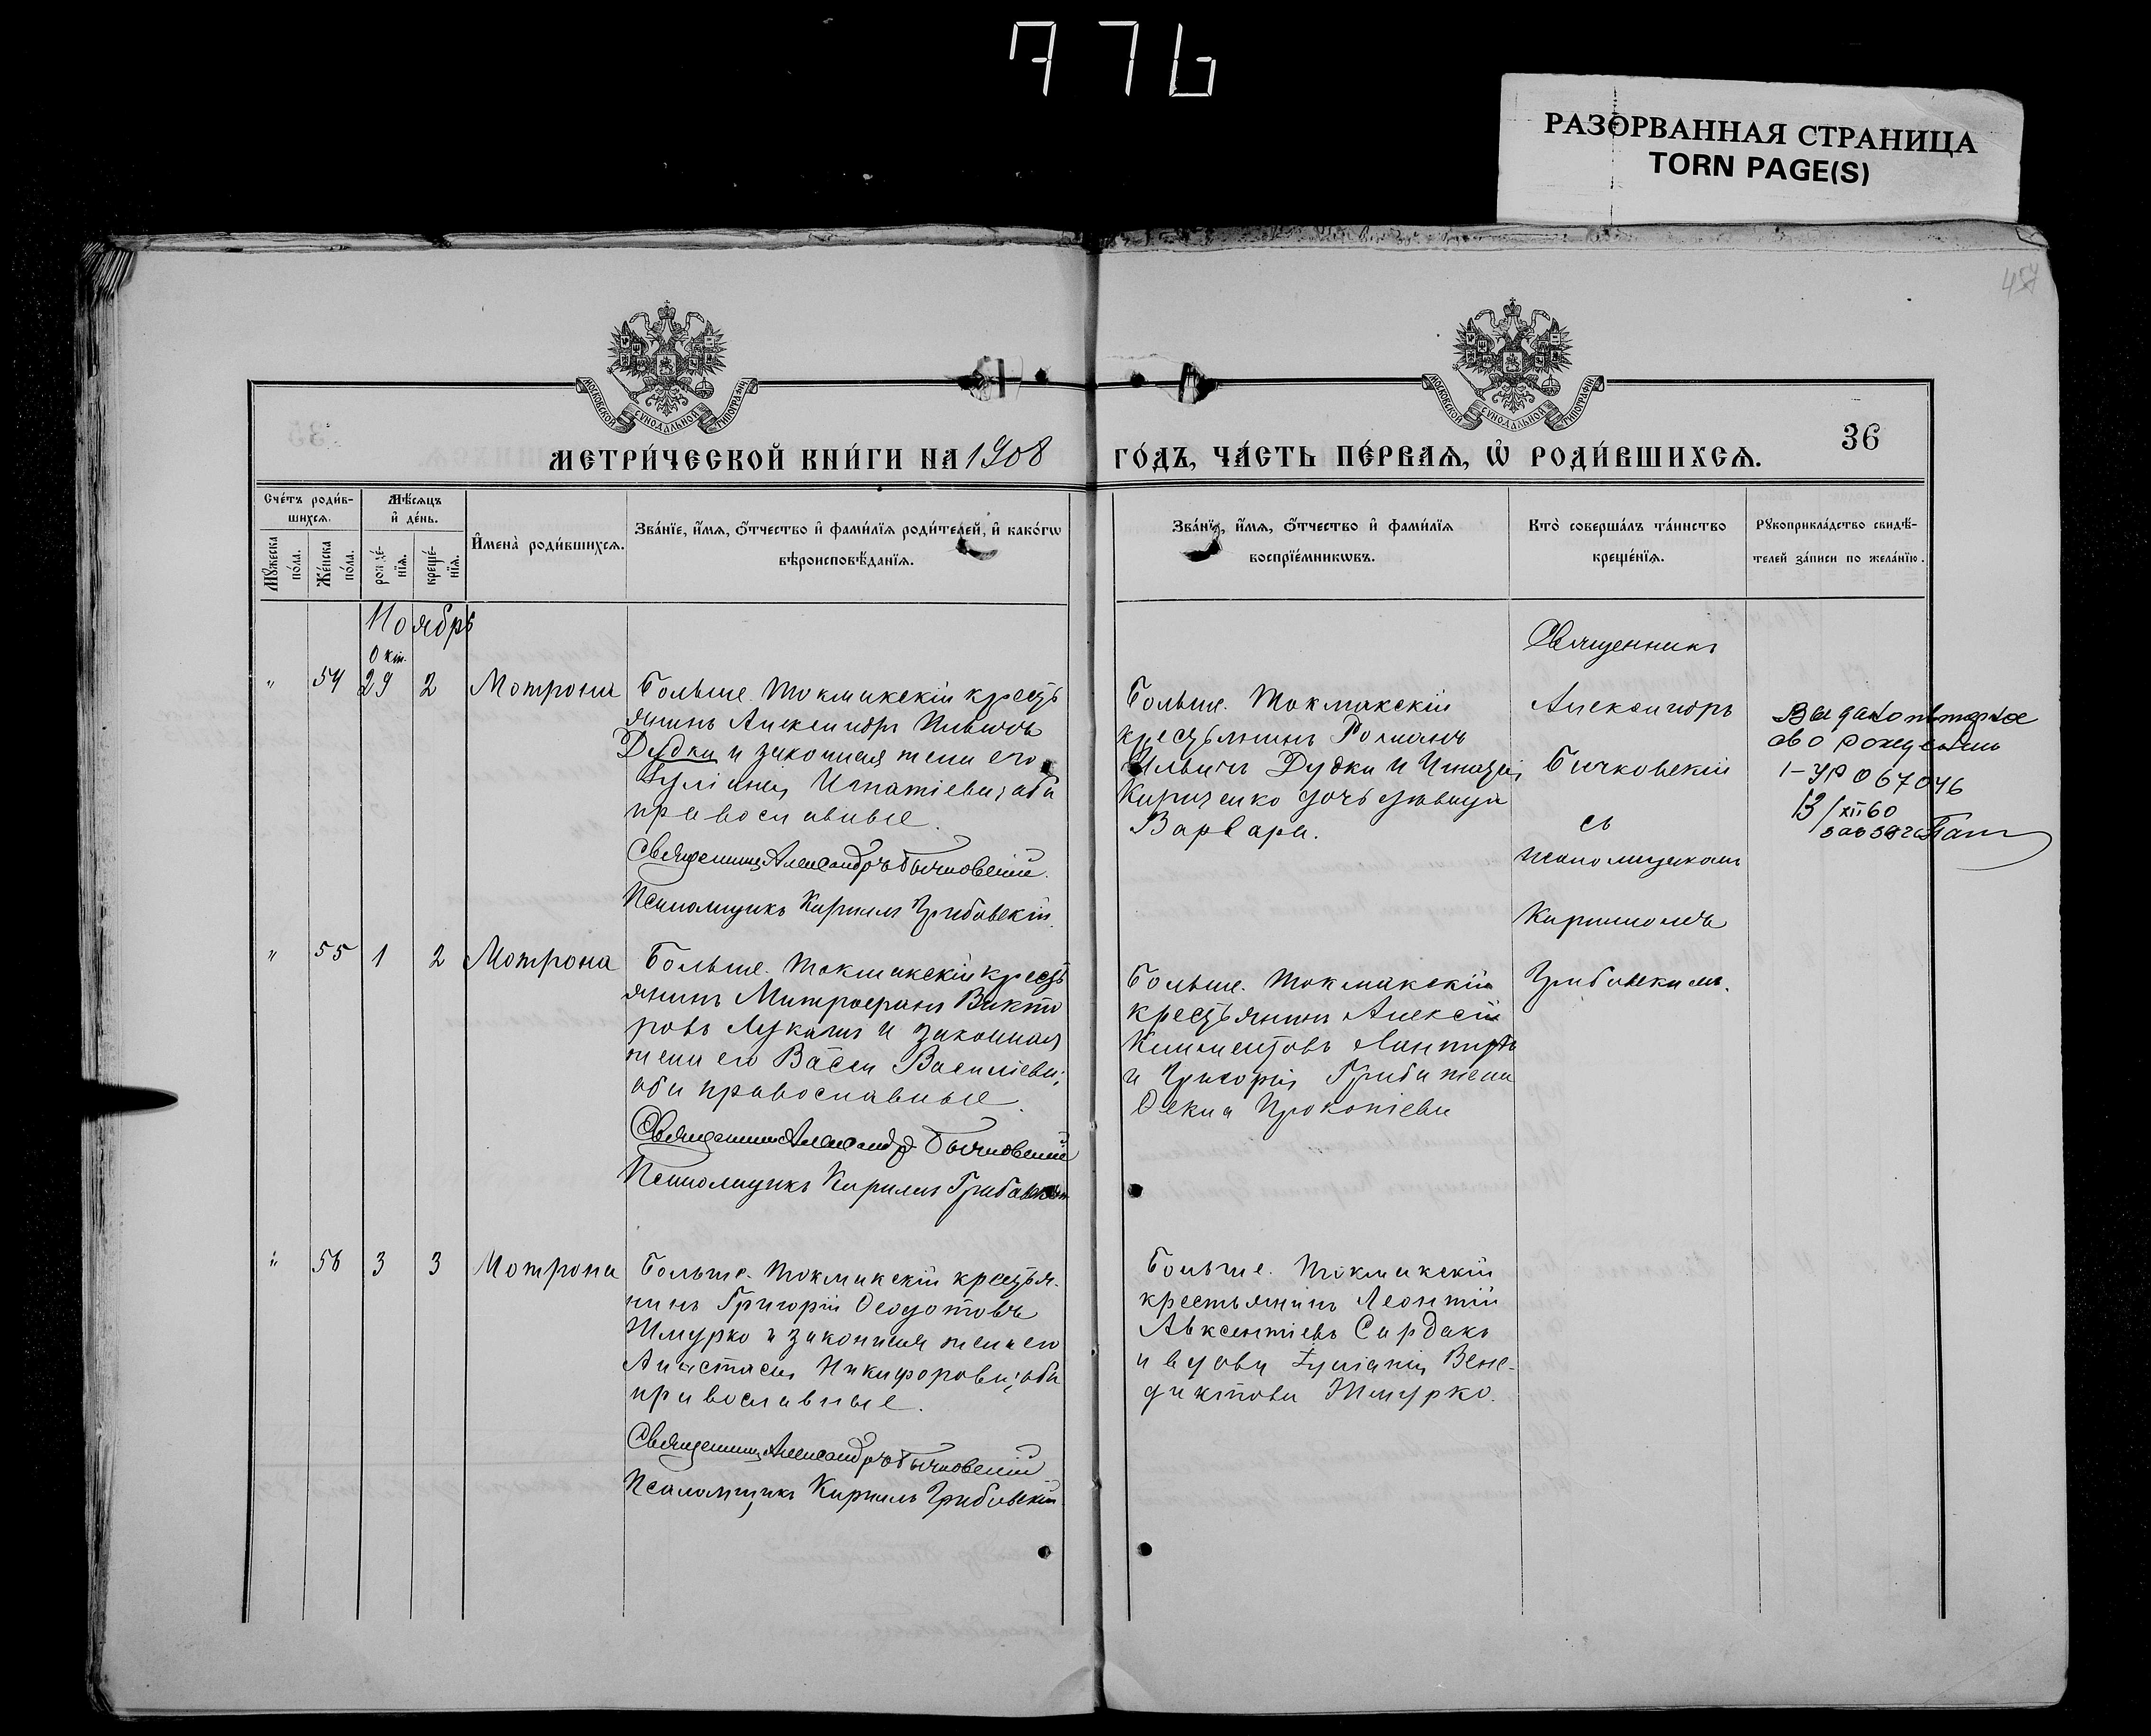 776
РАЗОРВАННАЯ СТРАНИЦА
TORN PAGE(S)
МОСКОВСКОЙ СѴНОДАЛЬНОЙ ТИПОГРАФІИ
МОСКОВСКОЙ СѴНОДАЛЬНОЙ ТИПОГРАФІИ
МЕТРИ́ЧЕСКОЙ КНИ́ГИ НА 1908
ГО́ДЪ, ЧА́СТЬ ПЕ́РВАѦ, Ѡ РОДИ́ВШИХСѦ.
36
Сче́тъ роди́в-
шихсѧ.
Мꙋжеска
по́ла.
Же́нска
по́ла.
Мѣ́сѧцъ
и҆ де́нь.
рожде́-
нїѧ.
креще́-
нїѧ.
И҆мена̀ роди́вшихсѧ.
Зва́нїе, и҆́мѧ, ѻ҆́тчество и҆ фами́лїѧ роди́телей, и҆ како́гѡ
вѣроисповѣ́данїѧ.
Зва́нїе, и҆́мѧ, ѻ҆́тчество и҆ фами́лїѧ
воспрїе́мникѡвъ.
Кто̀ соверша́лъ та́инство
креще́нїѧ.
Рꙋкоприкла́дство свидѣ́-
телей за́писи по жела́нїю.
Ноябрь
Окт.
" 54 29 2 Мотрона
Больше. Токмакскій кресть
янинъ Александръ Ильичъ
Дудка и законная жена его
Игнатіева; оба
православные.
Священникъ Александръ Бычковскій.
Псаломщикъ Кириллъ Грибовскій.
Больше. Токмакскій
крестьянинъ Романъ
Ильичъ Дудка и Игнатія
Кириченко дочь дѣвица
Варвара.
Священникъ
Александръ
Бычковскій
съ
псаломщикомъ
Кирилломъ
Грибовскимъ.
Выдано повторное
св о рождении
1-УР 067046
13/XII 60
" 55 1 2 Мотрона
Больше. Токмакскій кресть
янинъ Митрофанъ Викто
ровъ Лукашъ и законная
жена его Васса Василіева;
оба православные.
Священникъ Александръ Бычковскій
Псаломщикъ Кириллъ Грибовскій
Больше. Токмакскій
крестьянинъ Алексѣй
Климентовъ
и Григорія Гриба жена
Прокопіева
" 56 3 3 Мотрона
Больше. Токмакскій крестья-
нинъ Григорій Ѳеодотовъ
Жмурко и законная жена его
Анастасія Никифорова; оба
православные.
Священникъ Александръ Бычковскій
Псаломщикъ Кириллъ Грибовскій
Больше. Токмакскій
крестьянинъ Леонтій
Авксентіевъ Сардакъ
и вдова Вене-
диктова Жмурко.